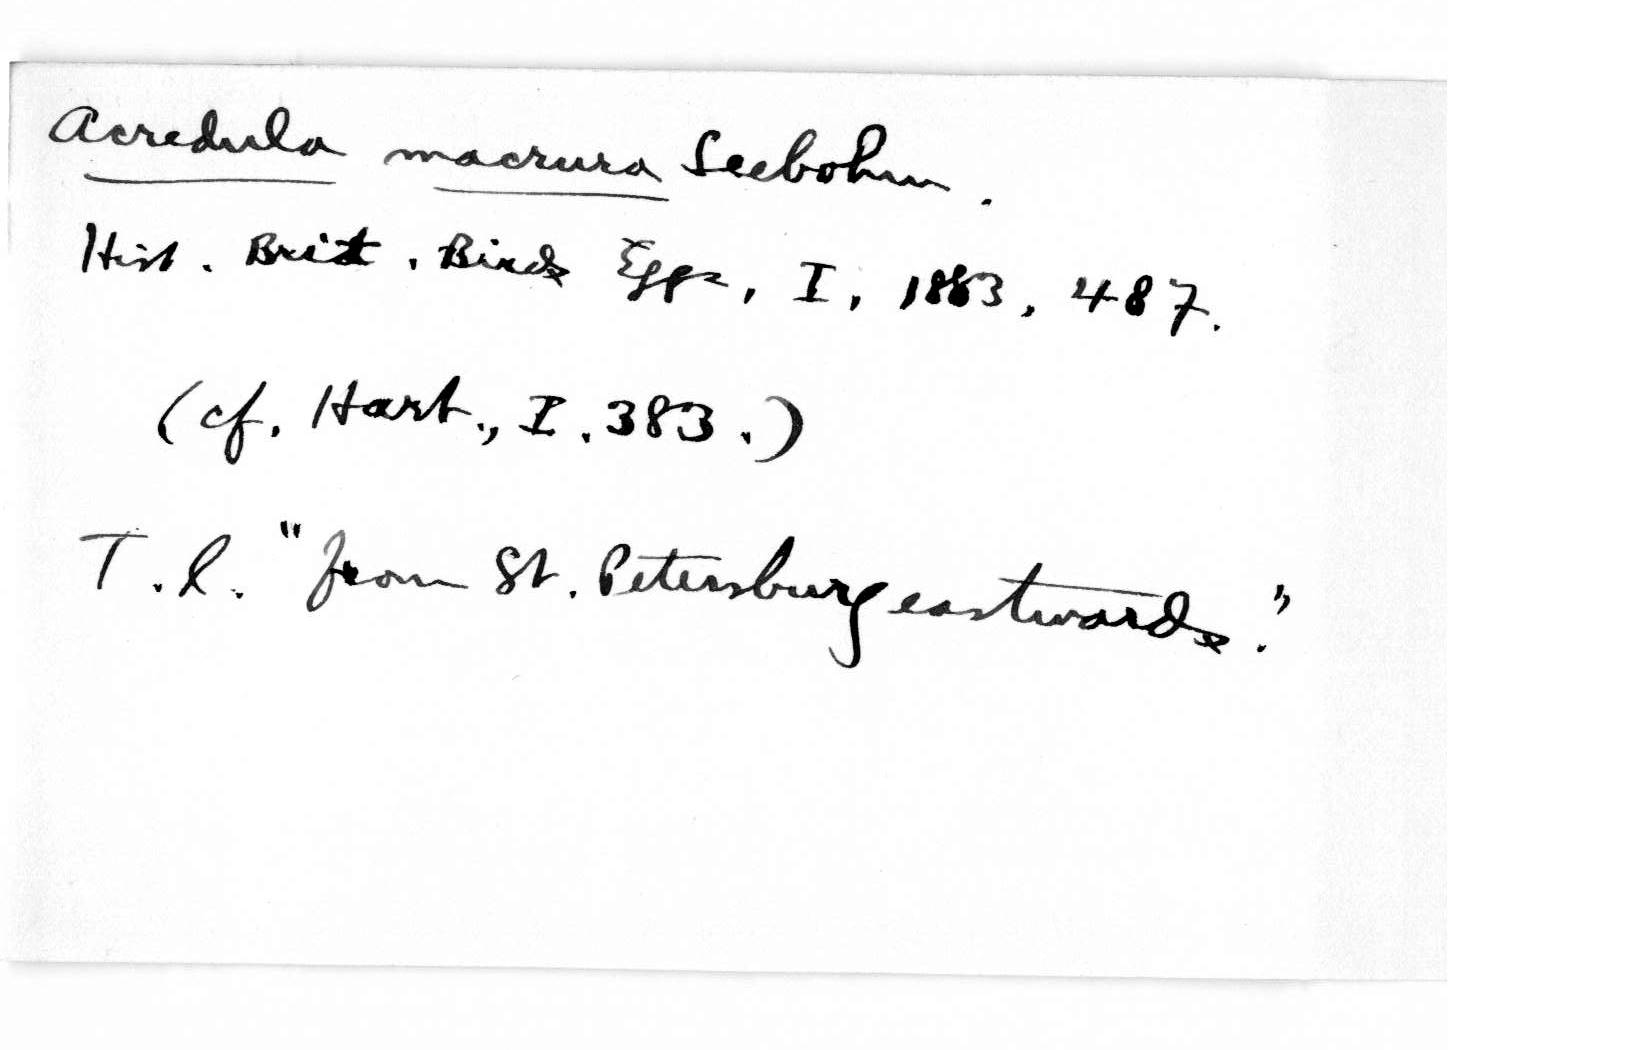 Acredula macrura Seebohm.
Hist. Brit. Birds Eggs, I, 1883, 487.
(cf. Hart., I. 383.)
T. l. "from St. Petersburg eastwards."